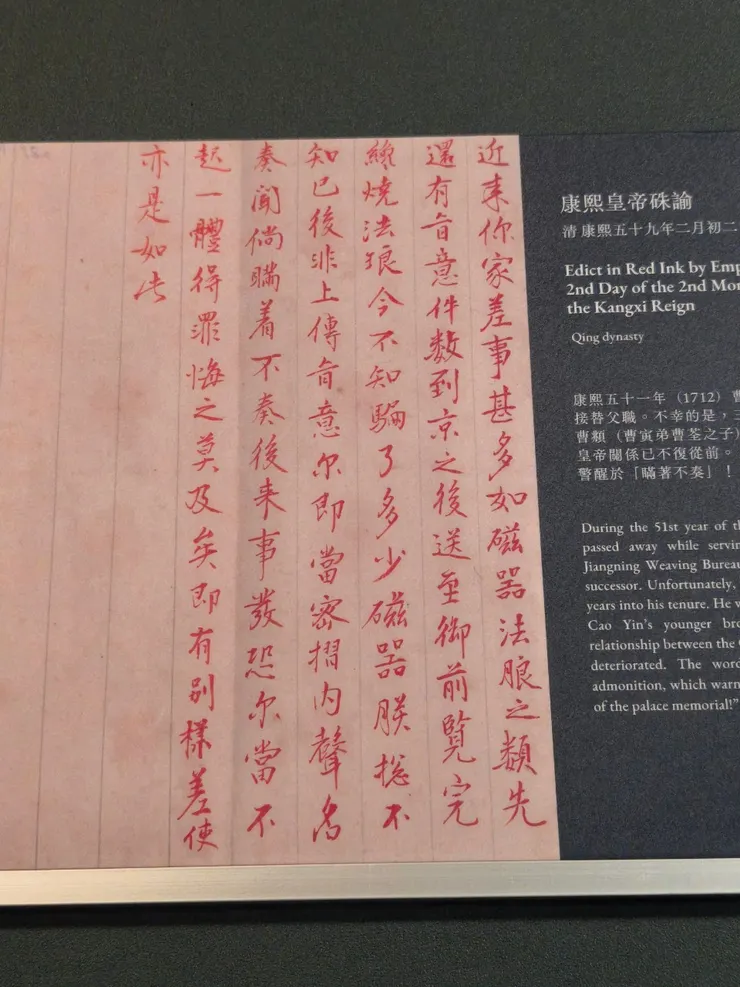 近来你家差事甚多如磁器法朖之類先
還有旨意件數到京之後送至御前覽完
纔燒法狼今不知騙了多少磁器朕捴不
知已後非上傳旨意尔即當密摺内聲名
奏聞倘瞞着不奏後来事發恐尔當不
起一體得罪悔之莫及矣即有别樣差使
亦是如此
康熙皇帝硃諭
清 康熙五十九年二月初二
Edict in Red Ink by Emp
2nd Day of the 2nd Mon
the Kangxi Reign
Qing dynasty
康熙五十一年（1712）曹
接替父職。不幸的是，三
曹頫（曹寅弟曹荃之子）
皇帝關係已不復從前。
警醒於「瞞著不奏」！
During the 51st year of th
passed away while servin
Jiangning Weaving Bureau
successor. Unfortunately,
years into his tenure. He w
Cao Yin's younger bro
relationship between the
deteriorated. The word
admonition, which warn
of the palace memorial!"